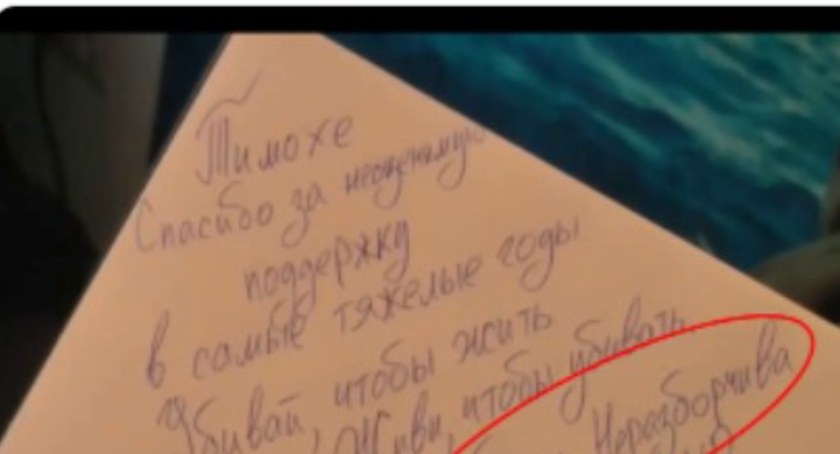 Тимохе
Спасибо за неоценимую
поддержку
в самые тяжелые годы
Убивай, чтобы жить
Живи, чтобы убивать
Неразборчива